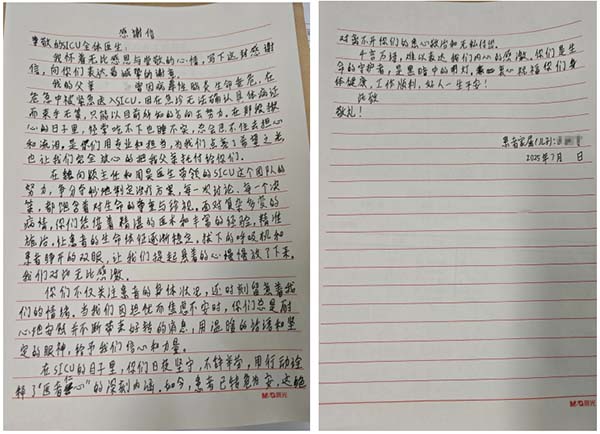 感谢信
尊敬的SICU全体医生:
我怀着无比感恩与崇敬的心情,写下这封感谢
信,向你们表达最诚挚的谢意。
我的父亲 曾因病毒性脑炎生命垂危,在
危急中被紧急送入SICU。因在急诊无法确认具体病症
而束手无策,只能以目前所知的去努力。在那段揪
心的日子里,经常吃不下也睡不安,总会忍不住去担心
和流泪,是你们用专业和担当,为我们点亮了希望之光
也让我们完全放心的把我父亲托付给你们。
在 主任和周昊医生带领的SICU这个团队的
努力,争分夺秒地制定治疗方案,每一次讨论、每一个决
策,都饱含着对生命的尊重与珍视。面对复杂多变的
病情,你们凭借着精湛的医术和丰富的经验,精准
施治,让患者的生命体征逐渐稳定,拔下的呼吸机和
患者睁开的双眼,让我们提起悬着的心慢慢放了下来。
我们对此无比感激。
你们不仅关注患者的身体状况,还时刻留意着我
们的情绪。当我们因担忧而焦急不安时,你们总是耐
心地安慰并不断带来好转的消息,用温暖的话语和坚
定的眼神,给予我们信心和力量。
在SICU的日子里,你们日夜坚守,不辞辛劳,用行动诠
释了“医者仁心”的深刻内涵。如今,患者已转危为安,这绝
M&G晨光
对离不开你们的悉心救治和无私付出。
千言万语,难以表达我们内心的感激。你们是生
命的守护者,是黑暗中的明灯,衷心祝福你们身
体健康,工作顺利,好人一生平安!
此致
敬礼!
患者家属(儿子):
2025年7月 日
M&G晨光